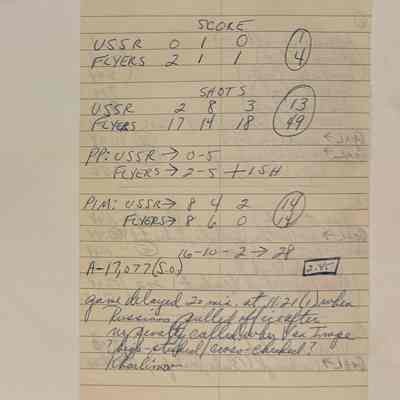 SCORE
USSR 0 1 0 1
FLYERS 2 1 1 4
SHOTS
USSR 2 8 3 13
FLYERS 17 14 18 49
PP: USSR → 0-5
FLYERS → 2-5 + 1 SH
PIM: USSR → 8 4 2 14
FLYERS → 8 6 0 14
16-10-2 → 28
A-17,077 (S.O.)
2:45
game delayed 20 min. at 11:21 (1) when
Russians pulled off ice after
no penalty called when Van Impe
? high-sticked/cross-checked?
Kharlamov